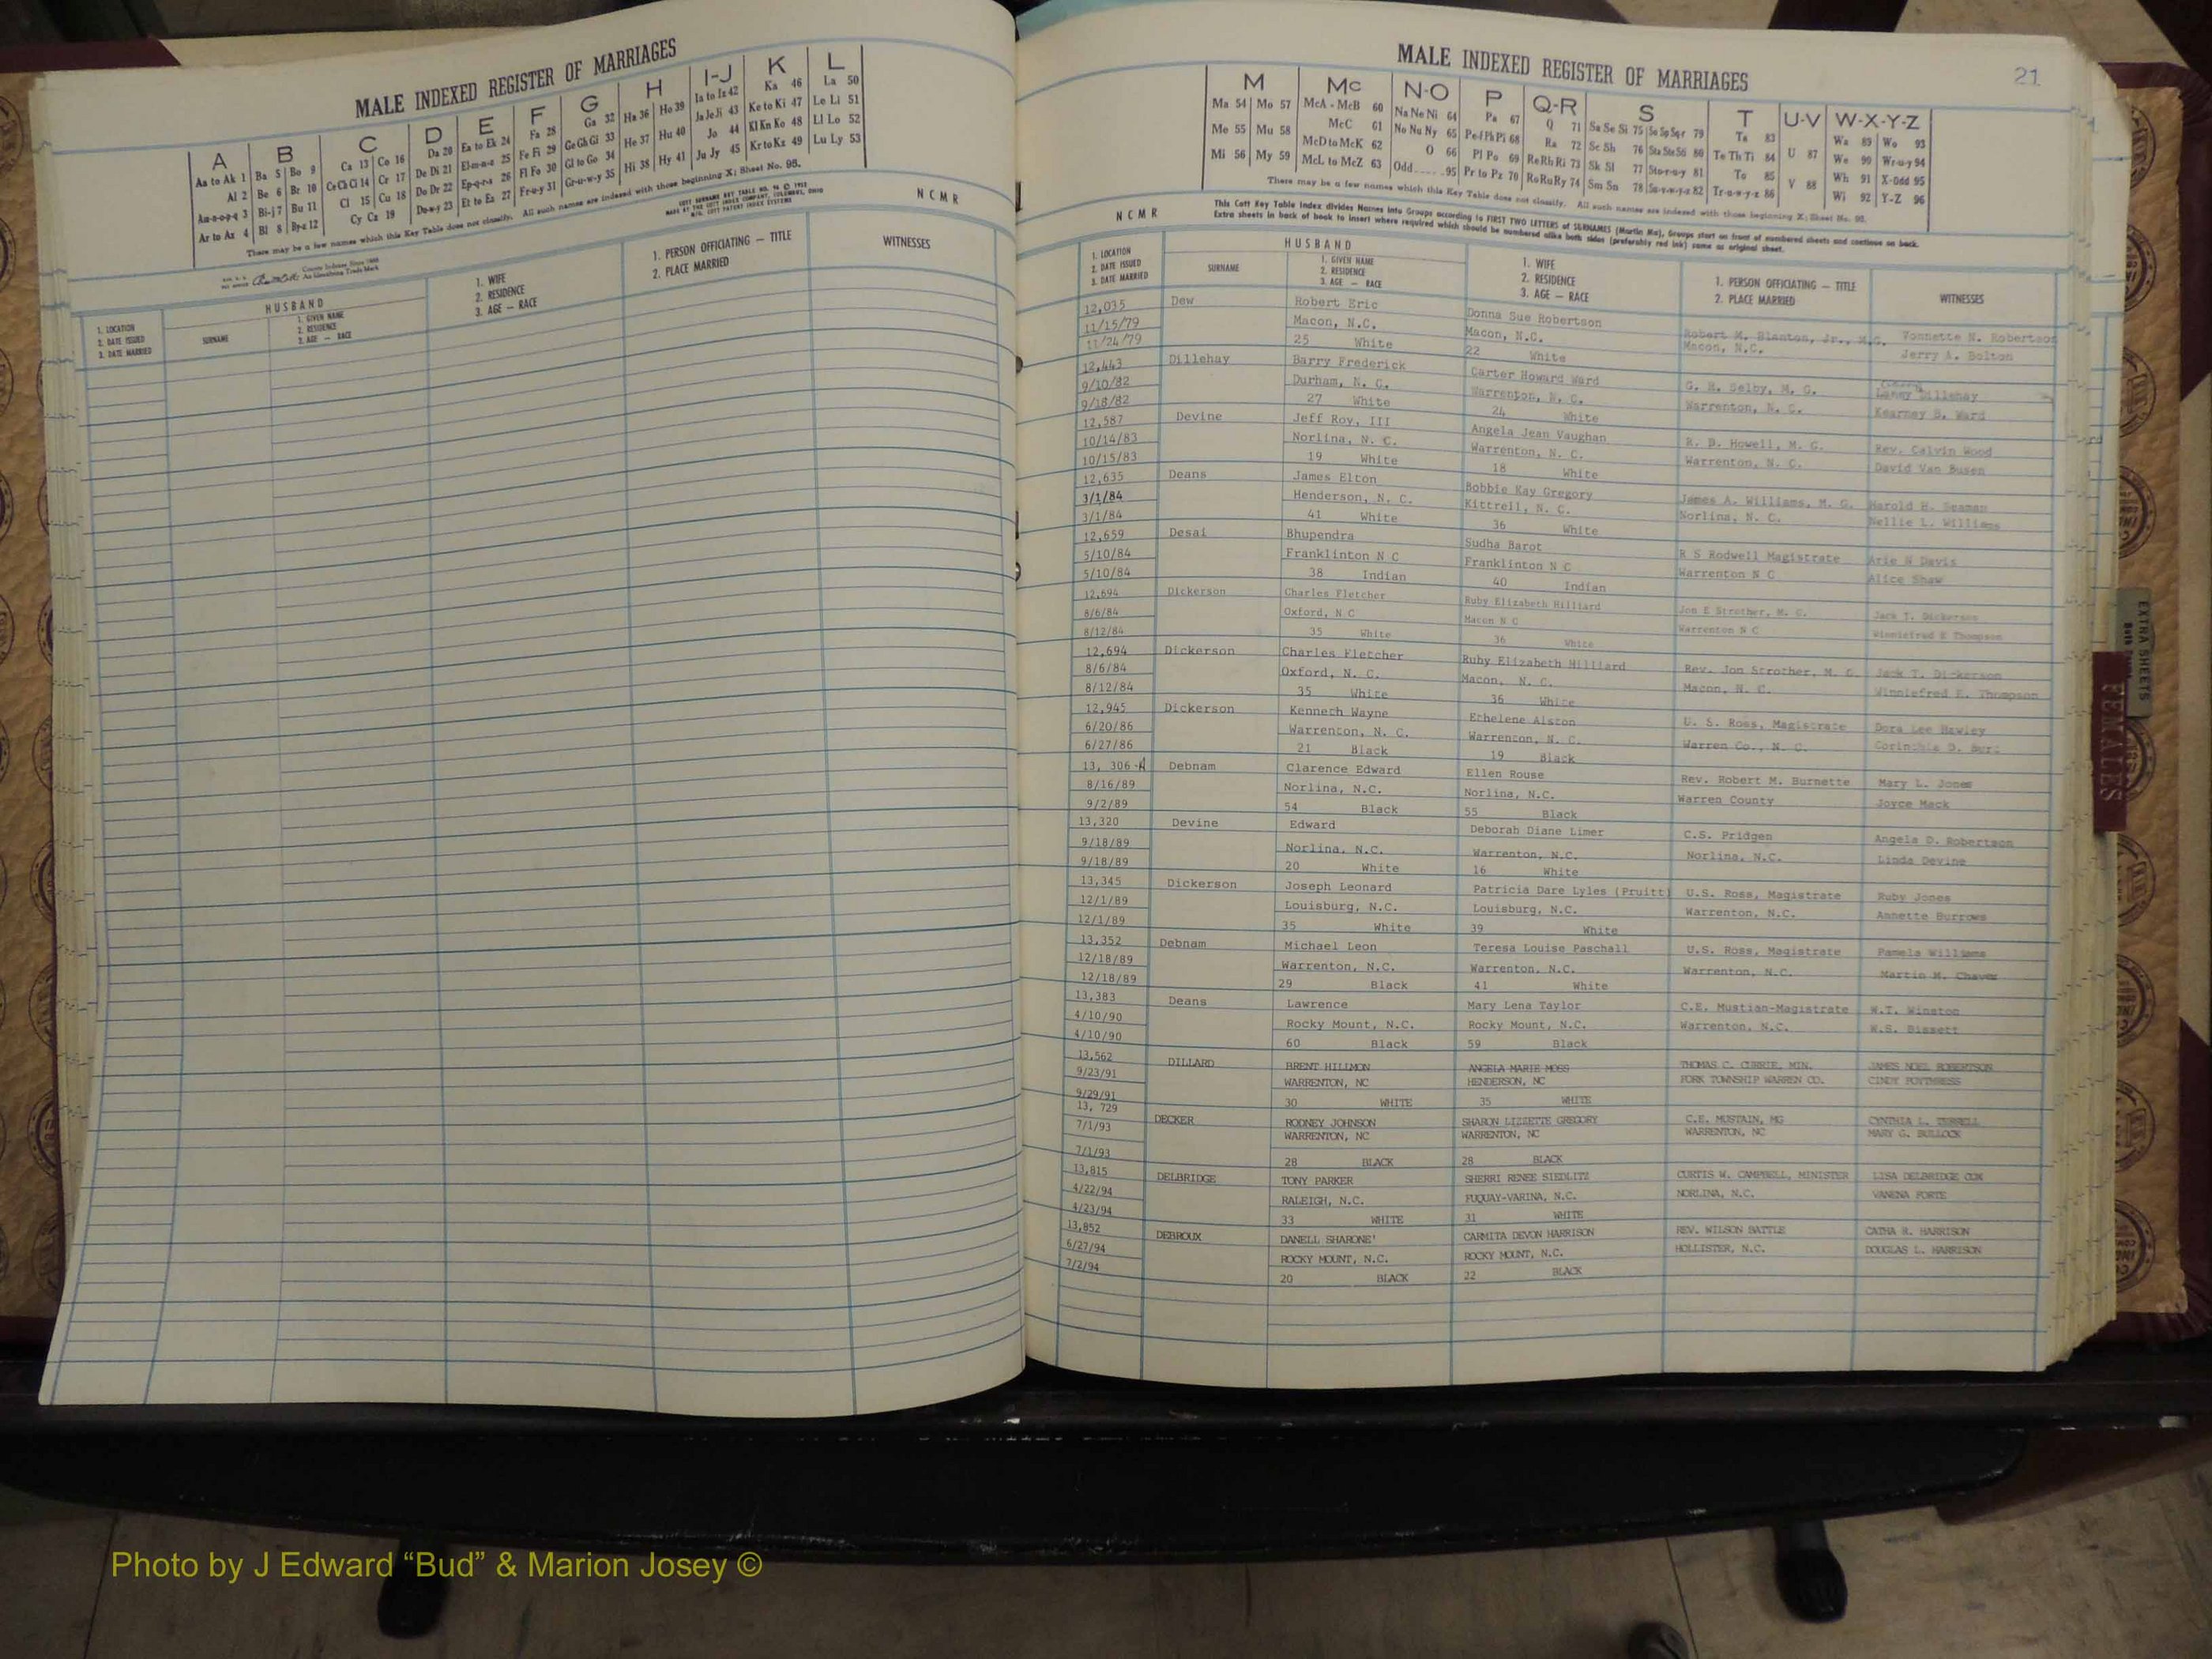 MALE INDEXED REGISTER OF MARRIAGES
A B C D E F G H I-J K L
Aa to Ak 1 Ba 5 Bo 9 Ca 13 Co 16 Da 20 Ea to Ek 24 Fa 28 Ga 32 Ha 36 Ho 39 Ia to Iz 42 Ka 46 La 50
Al 2 Be 6 Br 10 Ce Ch Ci 14 Cr 17 De Di 21 El-m-n-o 25 Fe Fi 29 Ge Gh Gi 33 He 37 Hu 40 Ja Je Ji 43 Ke to Ki 47 Le Li 51
Am-n-o-p-q 3 Bi-j 7 Bu 11 Cl 15 Cu 18 Do Dr 22 Ep-q-r-s 26 Fl Fo 30 Gl to Go 34 Hi 38 Hy 41 Jo 44 Kl Kn Ko 48 Ll Lo 52
Ar to Az 4 Bl 8 By-z 12 Cy Cz 19 Du-w-y 23 Et to Ez 27 Fr-u-y 31 Gr-u-w-y 35 Ju Jy 45 Kr to Kz 49 Lu Ly 53
There may be a few names which this Key Table does not classify. All such names are indexed with those beginning X; Sheet No. 98.
N C M R
HUSBAND
1. LOCATION
2. DATE ISSUED
3. DATE MARRIED
SURNAME
1. GIVEN NAME
2. RESIDENCE
3. AGE — RACE
1. WIFE
2. RESIDENCE
3. AGE — RACE
1. PERSON OFFICIATING — TITLE
2. PLACE MARRIED
WITNESSES
MALE INDEXED REGISTER OF MARRIAGES
21
M Mc N-O P Q-R S T U-V W-X-Y-Z
Ma 54 Mo 57 McA - McB 60 Na Ne Ni 64 Pa 67 Q 71 Sa Se Si 75 So Sp Sq-r 79 Ta 83 U 87 Wa 89 Wo 93
Me 55 Mu 58 McC 61 No Nu Ny 65 Pe-f Ph Pi 68 Ra 72 Sc Sh 76 Sta Ste Sti 80 Te Th Ti 84 V 88 We 90 Wr-u-y 94
Mi 56 My 59 McD to McK 62 O 66 Pl Po 69 Re Rh Ri 73 Sk Sl 77 Sto-r-u-y 81 To 85 Wh 91 X-Odd 95
McL to McZ 63 Odd 95 Pr to Pz 70 Ro Ru Ry 74 Sm Sn 78 Su-v-w-y-z 82 Tr-u-w-y-z 86 Wi 92 Y-Z 96
There may be a few names which this Key Table does not classify. All such names are indexed with those beginning X; Sheet No. 98.
This Cott Key Table Index divides Names into Groups according to FIRST TWO LETTERS of SURNAMES (Martin Ma), Groups start on front of numbered sheets and continue on back.
Extra sheets in back of book to insert where required which should be numbered alike both sides (preferably red ink) same as original sheet.
N C M R
HUSBAND
1. LOCATION
2. DATE ISSUED
3. DATE MARRIED
SURNAME
1. GIVEN NAME
2. RESIDENCE
3. AGE — RACE
1. WIFE
2. RESIDENCE
3. AGE — RACE
1. PERSON OFFICIATING — TITLE
2. PLACE MARRIED
WITNESSES
12,035 Dew Robert Eric Donna Sue Robertson Robert M. Blanton, Jr., M.G. Vonnette N. Robertson
11/15/79 Macon, N.C. Macon, N.C. Macon, N.C. Jerry A. Bolton
11/24/79 25 White 22 White
12,443 Dillehay Barry Frederick Carter Howard Ward G. H. Selby, M. G. Dillehay
9/10/82 Durham, N. C. Warrenton, N. C. Warrenton, N. C. Kearney B. Ward
9/18/82 27 White 24 White
12,587 Devine Jeff Roy, III Angela Jean Vaughan R. B. Howell, M. G. Rev. Calvin Wood
10/14/83 Norlina, N. C. Warrenton, N. C. Warrenton, N. C. David Van Busen
10/15/83 19 White 18 White
12,635 Deans James Elton Bobbie Kay Gregory James A. Williams, M. G. Harold H. Seaman
3/1/84 Henderson, N. C. Kittrell, N. C. Norlina, N. C. Nellie L. Williams
3/1/84 41 White 36 White
12,659 Desai Bhupendra Sudha Barot R S Rodwell Magistrate Arie N Davis
5/10/84 Franklinton N C Franklinton N C Warrenton N C Alice Shaw
5/10/84 38 Indian 40 Indian
12,694 Dickerson Charles Fletcher Ruby Elizabeth Hilliard Jon E Strother, M. G. Jack T. Dickerson
8/6/84 Oxford, N C Macon N C Warrenton N C Winniefred E Thompson
8/12/84 35 White 36 White
12,694 Dickerson Charles Fletcher Ruby Elizabeth Hilliard Rev. Jon Strother, M. G. Jack T. Dickerson
8/6/84 Oxford, N. C. Macon, N. C. Macon, N. C. Winniefred E. Thompson
8/12/84 35 White 36 White
12,945 Dickerson Kenneth Wayne Ethelene Alston U. S. Ross, Magistrate Dora Lee Hawley
6/20/86 Warrenton, N. C. Warrenton, N. C. Warren Co., N. C. Corinthia D. Burt
6/27/86 21 Black 19 Black
13, 306-A Debnam Clarence Edward Ellen Rouse Rev. Robert M. Burnette Mary L. Jones
8/16/89 Norlina, N.C. Norlina, N.C. Warren County Joyce Mack
9/2/89 54 Black 55 Black
13,320 Devine Edward Deborah Diane Limer C.S. Pridgen Angela D. Robertson
9/18/89 Norlina, N.C. Warrenton, N.C. Norlina, N.C. Linda Devine
9/18/89 20 White 16 White
13,345 Dickerson Joseph Leonard Patricia Dare Lyles (Pruitt) U.S. Ross, Magistrate Ruby Jones
12/1/89 Louisburg, N.C. Louisburg, N.C. Warrenton, N.C. Annette Burrows
12/1/89 35 White 39 White
13,352 Debnam Michael Leon Teresa Louise Paschall U.S. Ross, Magistrate Pamela Williams
12/18/89 Warrenton, N.C. Warrenton, N.C. Warrenton, N.C. Martin M. Chaves
12/18/89 29 Black 41 White
13,383 Deans Lawrence Mary Lena Taylor C.E. Mustian-Magistrate W.T. Winston
4/10/90 Rocky Mount, N.C. Rocky Mount, N.C. Warrenton, N.C. W.S. Bissett
4/10/90 60 Black 59 Black
13,562 DILLARD BRENT HILLMON ANGELA MARIE MOSS THOMAS C. CURRIE, MIN. JAMES NOEL ROBERTSON
9/23/91 WARRENTON, NC HENDERSON, NC FORK TOWNSHIP WARREN CO. CINDY POYTHRESS
9/29/91 30 WHITE 35 WHITE
13, 729 DECKER RODNEY JOHNSON SHARON LIZZETTE GREGORY C.E. MUSTAIN, MG CYNTHIA L. TERRELL
7/1/93 WARRENTON, NC WARRENTON, NC WARRENTON, NC MARY G. BULLOCK
7/1/93 28 BLACK 28 BLACK
13,815 DELBRIDGE TONY PARKER SHERRI RENEE SIEDLITZ CURTIS W. CAMPBELL, MINISTER LISA DELBRIDGE COX
4/22/94 RALEIGH, N.C. FUQUAY-VARINA, N.C. NORLINA, N.C. VANENA FORTE
4/23/94 33 WHITE 31 WHITE
13,852 DEBROUX DANELL SHARONE' CARMITA DEVON HARRISON REV. WILSON BATTLE CATHA R. HARRISON
6/27/94 ROCKY MOUNT, N.C. ROCKY MOUNT, N.C. HOLLISTER, N.C. DOUGLAS L. HARRISON
7/2/94 20 BLACK 22 BLACK
EXTRA SHEETS
FEMALES
Photo by J Edward “Bud” & Marion Josey ©